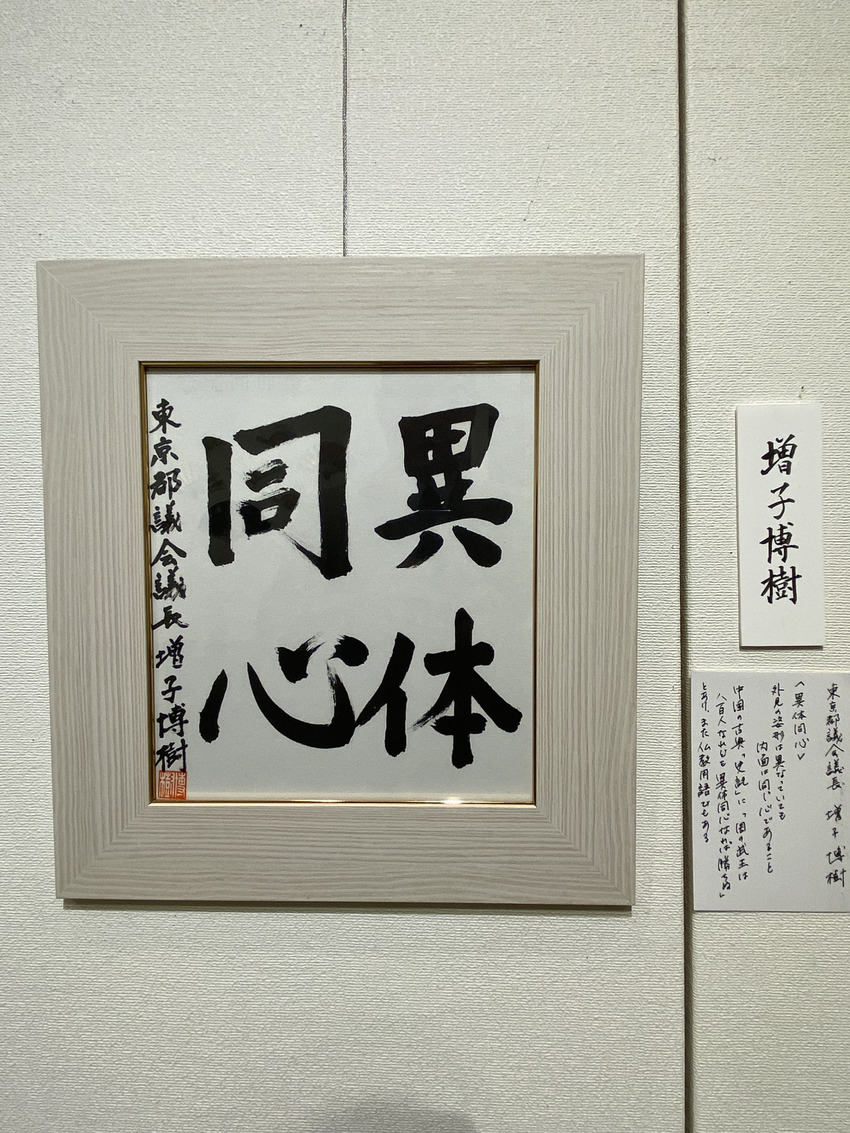 異体
同心
東京都議会議長 増子博樹
博樹
増子博樹
東京都議会議長 増子博樹
〈異体同心〉
外見の姿形は異なっていても
内面は同じ心であること
中国の古典「史記」に「周の武王は
八百人なれども異体同心なれば勝ちぬ」
とあり、また仏教用語でもある